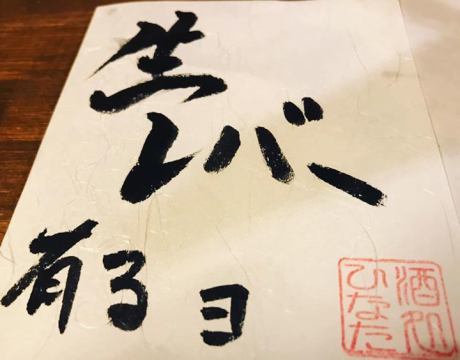 生
レバー
有るヨ
酒処
ひなた